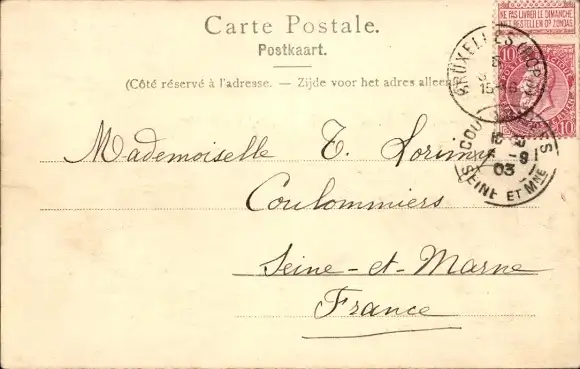 Carte Postale.
Postkaart.
(Côté réservé à l'adresse. — Zijde voor het adres alleen
NE PAS LIVRER LE DIMANCHE
NIET BESTELLEN OP ZONDAG
BRUXELLES
10
10
COU
ES
03
SEINE ET MNE
Mademoiselle T. Lorimy
Coulommiers
Seine-et-Marne
France